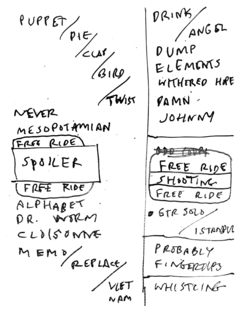 PUPPET/
DIE/
CLAP/
BIRD/
TWIST
NEVER
MESOPOTAMIAN
FREE RIDE
SPOILER
FREE RIDE
ALPHABET
DR. WORM
CLOISONNE
MEMO/
REPLACE/
VIET
NAM
DRINK/
ANGEL
DUMP
ELEMENTS
WITHERED HOPE
DAMN
JOHNNY
FREE RIDE
SHOOTING
FREE RIDE
• GTR SOLO/
ISTANBUL
PROBABLY
FINGERTIPS
WHISTLING